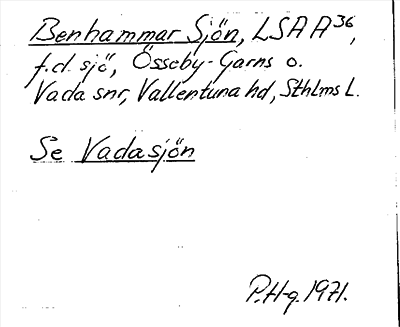 Benhammar Sjön, LSA A36,
f.d. sjö, Össeby-Garns o.
Vada snr, Vallentuna hd, Sthlms L.
Se Vadasjön
P.H-g. 1971.